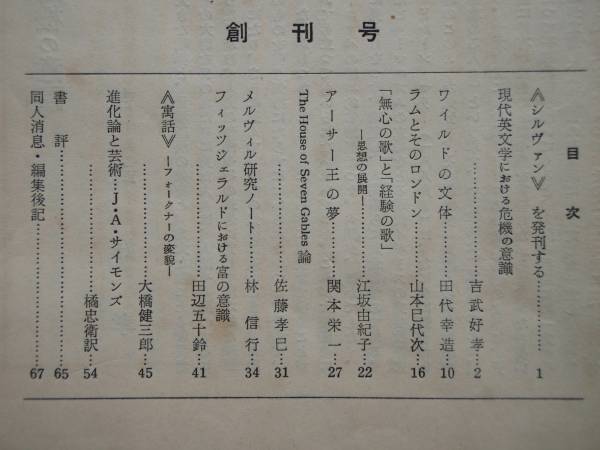 創刊号
目次
《シルヴァン》を発刊する……………1
現代英文学における危機の意識
……………吉武好孝…2
ワイルドの文体………田代幸造…10
ラムとそのロンドン………山本巳代次…16
「無心の歌」と「経験の歌」
―思想の展開―………江坂由紀子…22
アーサー王の夢………関本栄一…27
The House of Seven Gables 論
……………佐藤孝巳…31
メルヴィル研究ノート………林信行…34
フィッツジェラルドにおける富の意識
……………田辺五十鈴…41
《寓話》―フォークナーの変貌―
……………大橋健三郎…45
進化論と芸術…J・A・サイモンズ
……………橘忠衛訳…54
書評……………65
同人消息・編集後記……………67